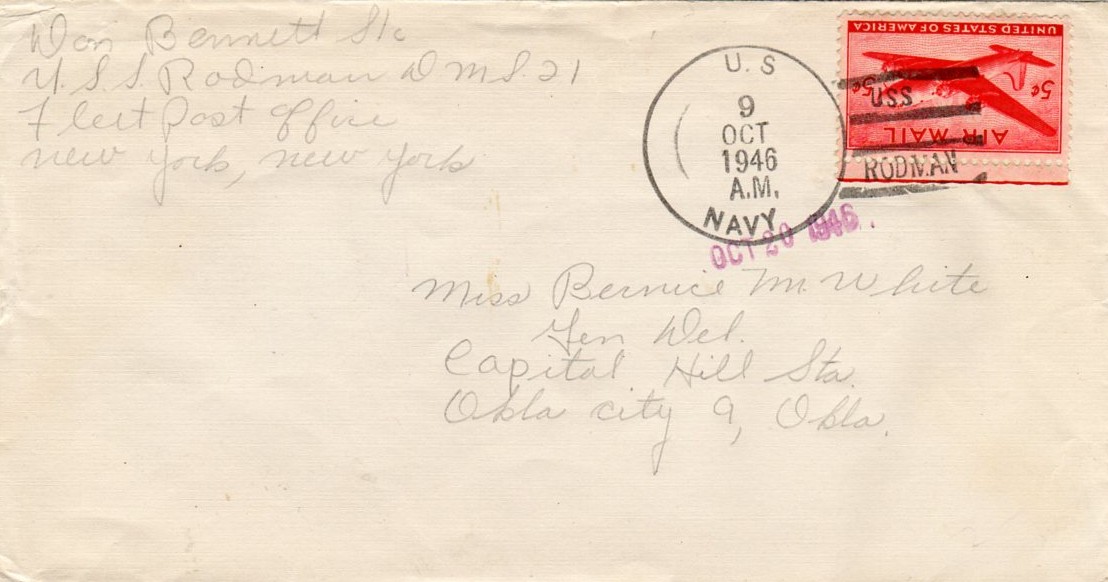 Don Bennett S1c
U.S.S. Rodman DMS.21
Fleet Post Office
New York, New York
U.S
9
OCT
1946
A.M.
NAVY
USS
RODMAN
UNITED STATES OF AMERICA
5¢ 5¢
AIR MAIL
OCT 20 1946
Miss Bernice M. White
Gen Del.
Capital Hill Sta.
Okla city 9, Okla.